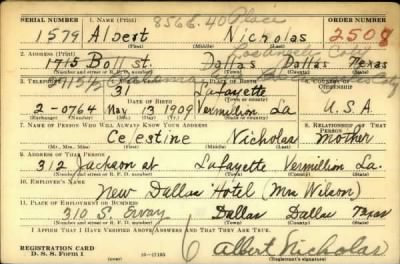 SERIAL NUMBER 1. NAME (Print) 8566.40 Place ORDER NUMBER
1579 Albert Nicholas 2508
(First) (Middle) (Last)
2. ADDRESS (Print) Los Angeles
1715 Boll st. Dallas Dallas Texas
(Number and street or R. F. D. number) (Town) (County) (State)
3. TELEPHONE COUNTRY OF CITIZENSHIP
31 Lafayette
DATE OF BIRTH
2-0764 Nov 13 1909 Vermillion La U.S.A.
(Exchange) (Number) (Mo.) (Day) (Yr.) (State or country)
7. NAME OF PERSON WHO WILL ALWAYS KNOW YOUR ADDRESS 8. RELATIONSHIP OF THAT PERSON
Celestine Nicholas Mother
(Mr., Mrs., Miss) (First) (Middle) (Last)
9. ADDRESS OF THAT PERSON
312 Jackson st Lafayette Vermillion La.
(Number and street or R. F. D. number) (Town) (County) (State)
10. EMPLOYER'S NAME
New Dallas Hotel (Mrs Wilson)
11. PLACE OF EMPLOYMENT OR BUSINESS
310 S. Ervay Dallas Dallas Texas
(Number and street or R. F. D. number) (Town) (County) (State)
I AFFIRM THAT I HAVE VERIFIED ABOVE ANSWERS AND THAT THEY ARE TRUE.
REGISTRATION CARD
D. S. S. FORM 1 Albert Nicholas
(Registrant's signature)